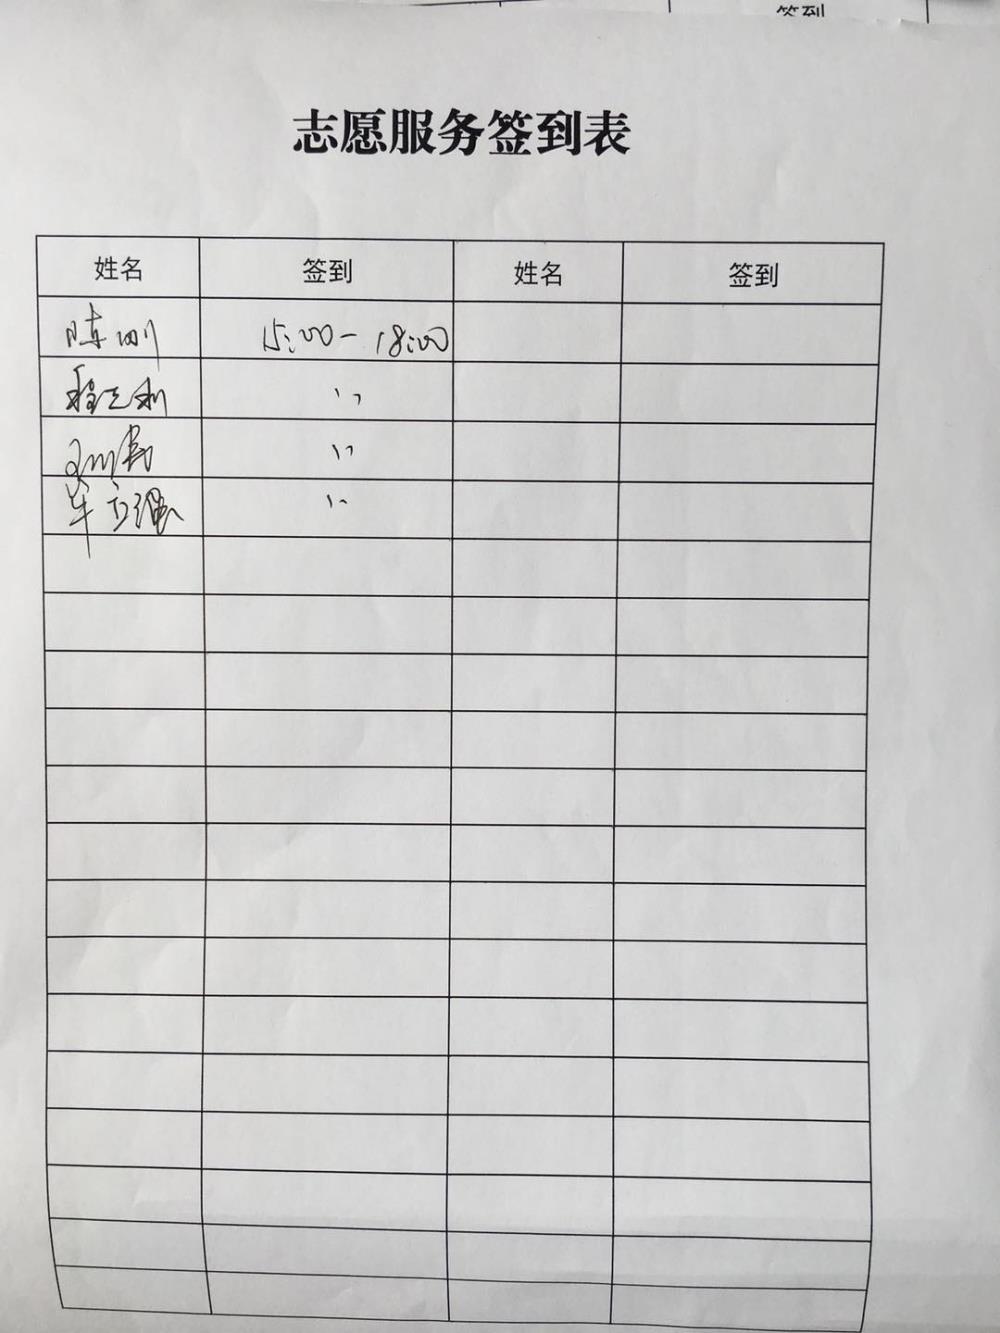 签到
志愿服务签到表
姓名 签到 姓名 签到
陈刚 15:00－18:00
程三利 〃
〃
车立强 〃